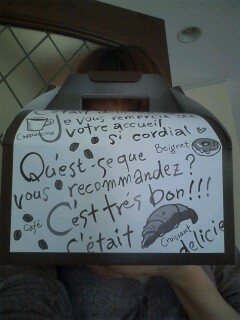 Je vous remercie de
votre accueil
si cordial
Cappuccino
Beignet
Qu'est-se que
vous recommandez?
C'est trés bon!!!
Café
C'était
Croissant
délicie